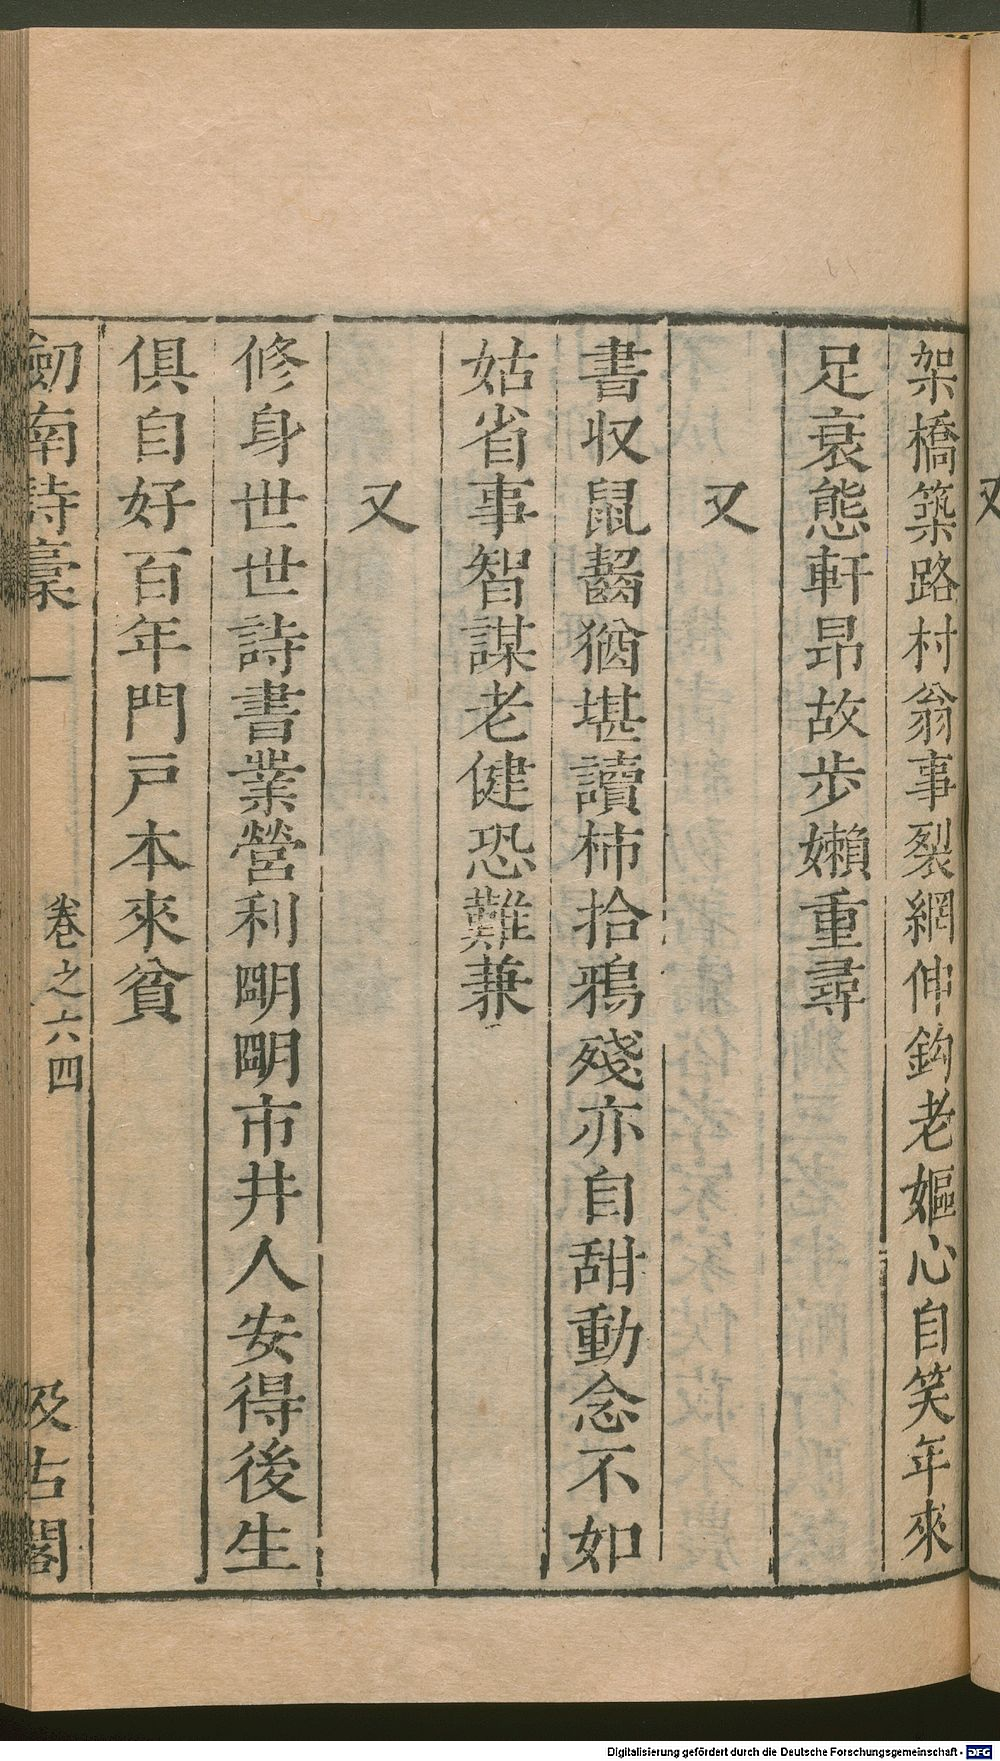 又
架橋築路村翁事裂網伸鈎老嫗心自笑年來
足衰態軒昂故步嬾重尋
又
書収鼠齧猶堪讀柿拾鴉殘亦自甜動念不如
姑省事智謀老健恐難兼
又
修身世世詩書業營利朙朙市井人安得後生
俱自好百年門戸本來貧
劒南詩稾 一 卷之六四 汲古閣
Digitalisierung gefördert durch die Deutsche Forschungsgemeinschaft - DFG